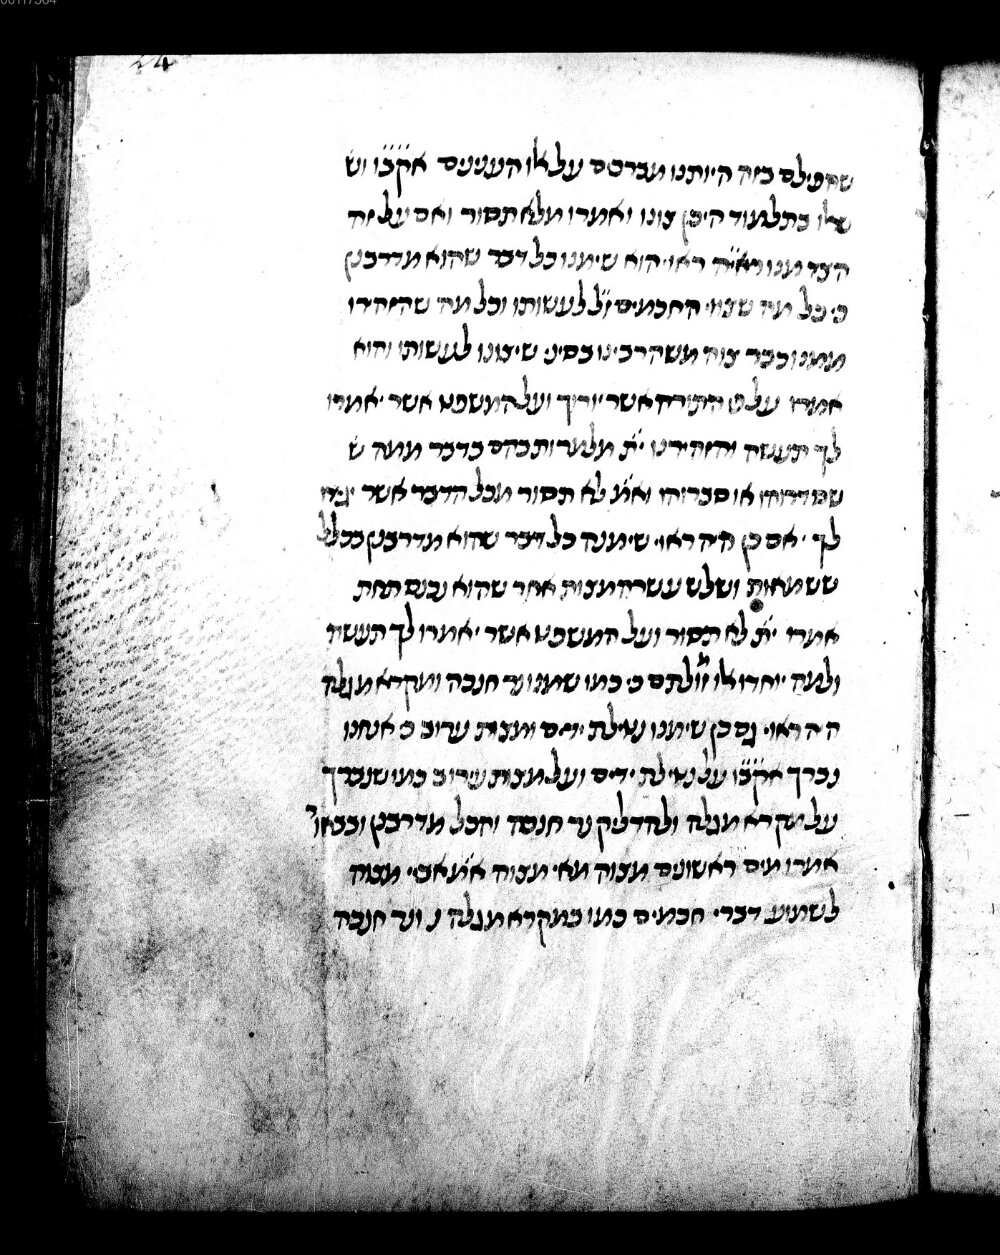 שהפילם בזה היותנו מברכים על אלו הענינים אקב̈ו̈ וש
שלו בתלמוד היכן צונו ואמרו מלא תסור ואם על זה
הצד מנו ראיה ראוי הוא שימנו כל דבר שהוא מדרבנן
כי כל מה שצוו החכמים ז̈ל לעשותו וכל מה שהזהירו
ממנו כבר צוה משה רבינו בסיני שיצונו לעשותו והוא
אמרו על פי התורה אשר יורוך ועל המשפט אשר יאמרו
לך תעשה והזהירנו ית̈ מלעבור בהם בדבר ממה ש
שסדרוהו או סברוהו וא̈מ לא תסור מכל הדבר אשר יגידו
לך אם כן היה ראוי שימנה כל דבר שהוא מדרבנן בכלל
שש מאות ושלש עשרה מצות אחר שהוא נכנס תחת
אמרו ית̈ לא תסור ועל המשפט אשר יאמרו לך תעשה
ולמה יוחדו אלו זולתם כי כמו שמנו נר חנכה ומקרא מגלה
היה ראוי גם כן שימנו נטילת ידים ומצות ערוב כי אנחנו
נברך אקב̈ו̈ על נטילת ידים ועל מצות עירוב כמו שנברך
על מקרא מגלה ולהדליק נר חנכה והכל מדרבנן ובבאור
אמרו מים ראשונים מצוה מאי מצוה א̈מ אביי מצוה
לשמוע דברי חכמים כמו במקרא מגלה נ ונר חנכה